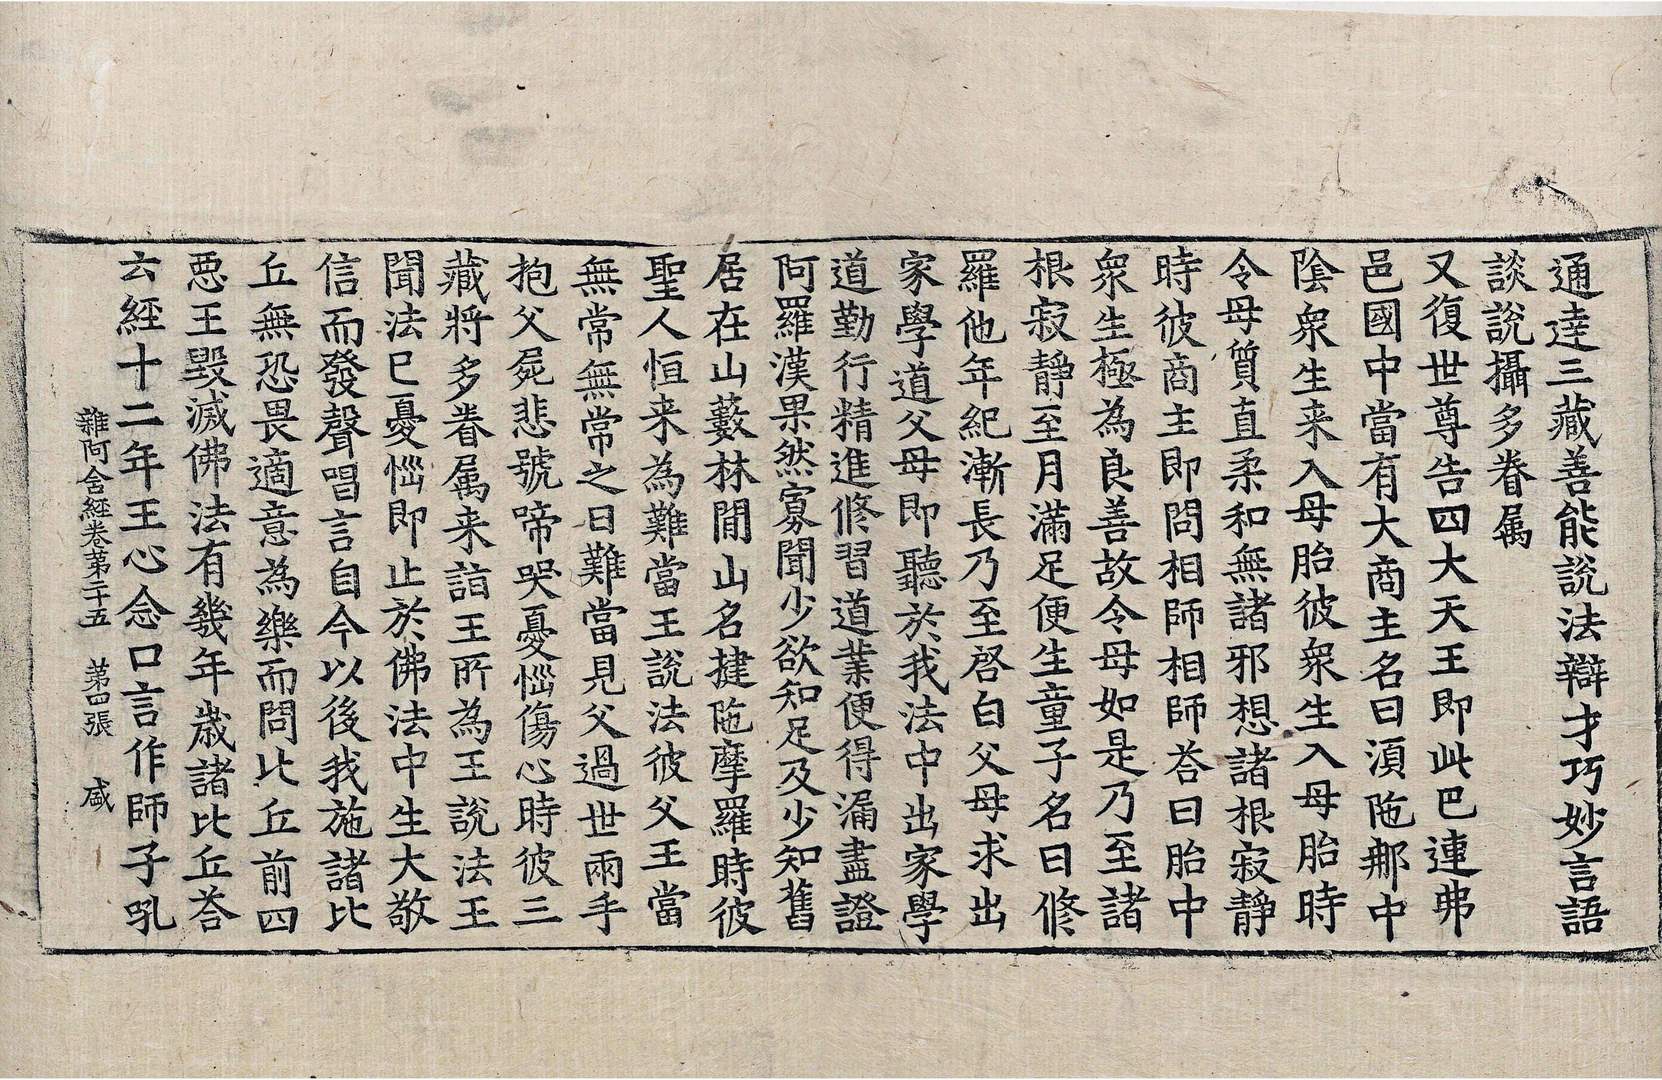 通達三藏善能說法辯才巧妙言語
談說攝多眷属
又復世尊告四大天王即此巴連弗
邑國中當有大商主名曰湏陁郍中
陰衆生来入母胎彼衆生入母胎時
令母質直柔和無諸邪想諸根寂静
時彼商主即問相師相師荅曰胎中
衆生極為良善故令母如是乃至諸
根寂静至月滿足便生童子名曰修
羅他年紀漸長乃至啓白父母求出
家學道父母即聽於我法中出家學
道勤行精進修習道業便得漏盡證
阿羅漢果然寡聞少欲知足及少知舊
居在山藪林間山名揵陁摩羅時彼
聖人恒来為難當王說法彼父王當
無常無常之日難當見父過世兩手
抱父屍悲號啼哭憂惱傷心時彼三
藏將多眷属来詣王所為王說法王
聞法已憂惱即止於佛法中生大敬
信而發聲唱言自今以後我施諸比
丘無恐畏適意為樂而問比丘前四
惡王毀滅佛法有幾年歲諸比丘荅
云經十二年王心念口言作師子吼
雜阿含經卷第二十五 第四張 盛